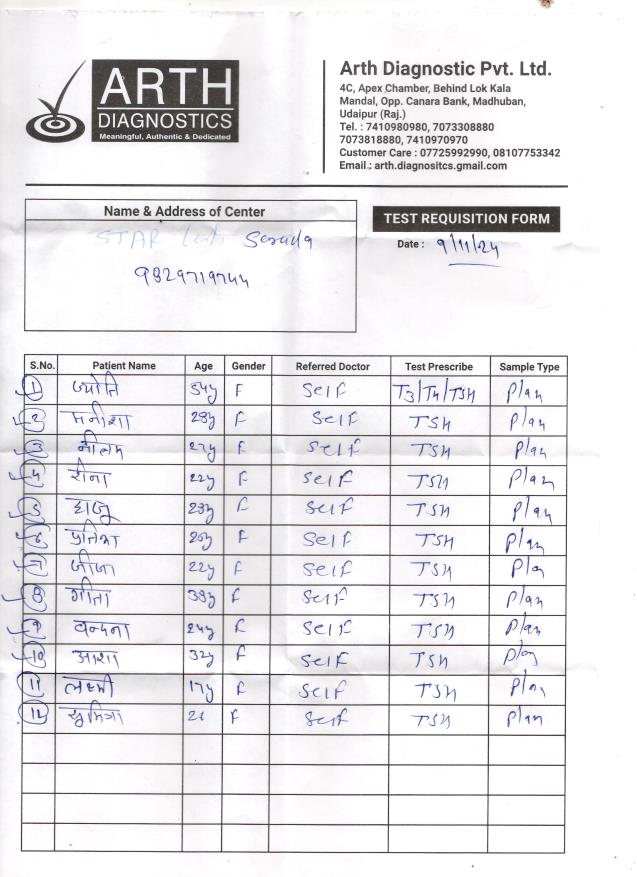 ARTH
DIAGNOSTICS
Meaningful, Authentic & Dedicated
Arth Diagnostic Pvt. Ltd.
4C, Apex Chamber, Behind Lok Kala
Mandal, Opp. Canara Bank, Madhuban,
Udaipur (Raj.)
Tel. : 7410980980, 7073308880
7073818880, 7410970970
Customer Care : 07725992990, 08107753342
Email : arth.diagnositcs.gmail.com
Name & Address of Center
STAR Lab
9829719744
TEST REQUISITION FORM
Date : 9/11/24
S.No. Patient Name Age Gender Referred Doctor Test Prescribe Sample Type
1 ज्योति 54y F Self T3/T4/TSH Plan
2 मनीशा 28y F Self TSH Plan
3 नीलम 27y F Self TSH Plan
4 रीना 22y F Self TSH Plan
5 23y F Self TSH Plan
6 F Self TSH Plan
7 22y F Self TSH Plan
8 गीता 38y F Self TSH Plan
9 वन्दना 24y F Self TSH Plan
10 आशा 32y F Self TSH Plan
11 लक्ष्मी 17y F Self TSH Plan
12 21 F Self TSH Plan